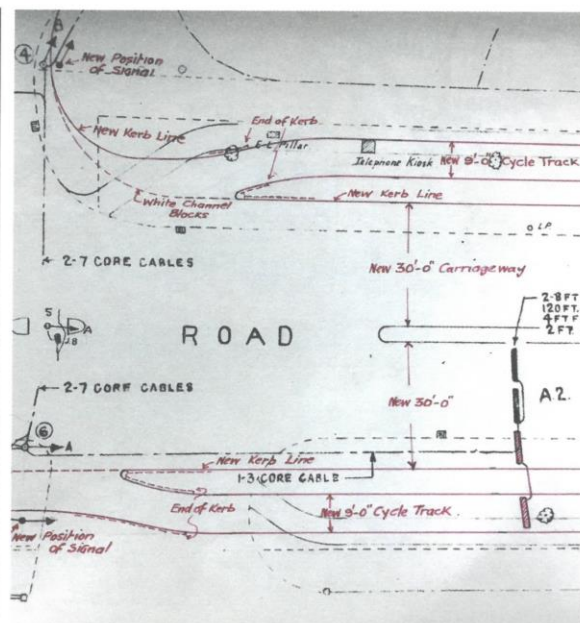 B
4
New Position
of Signal
New Kerb Line
End of Kerb
E.L. Pillar
Telephone Kiosk
New 9'-0" Cycle Track
White Channel
Blocks
New Kerb Line
L.P.
2-7 CORE CABLES
New 30'-0" Carriageway
2-8FT
120FT.
4FT
2FT.
5
A
B
ROAD
A.2.
2-7 CORE CABLES
New 30'-0"
6
A
New Kerb Line
1-3 CORE CABLE
End of Kerb
New 9'-0" Cycle Track
New Position
of Signal